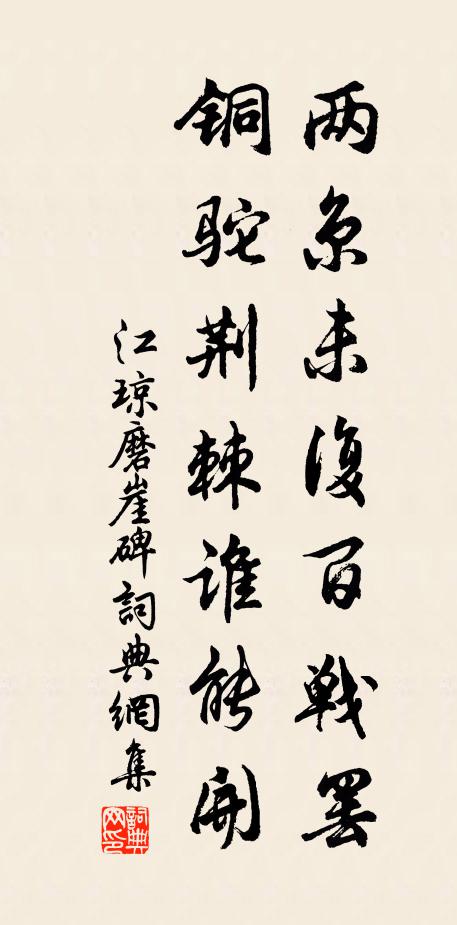 两京未復百戦罢
铜驼荆棘谁能開
江琼磨崖碑詞典網集
詞典網印